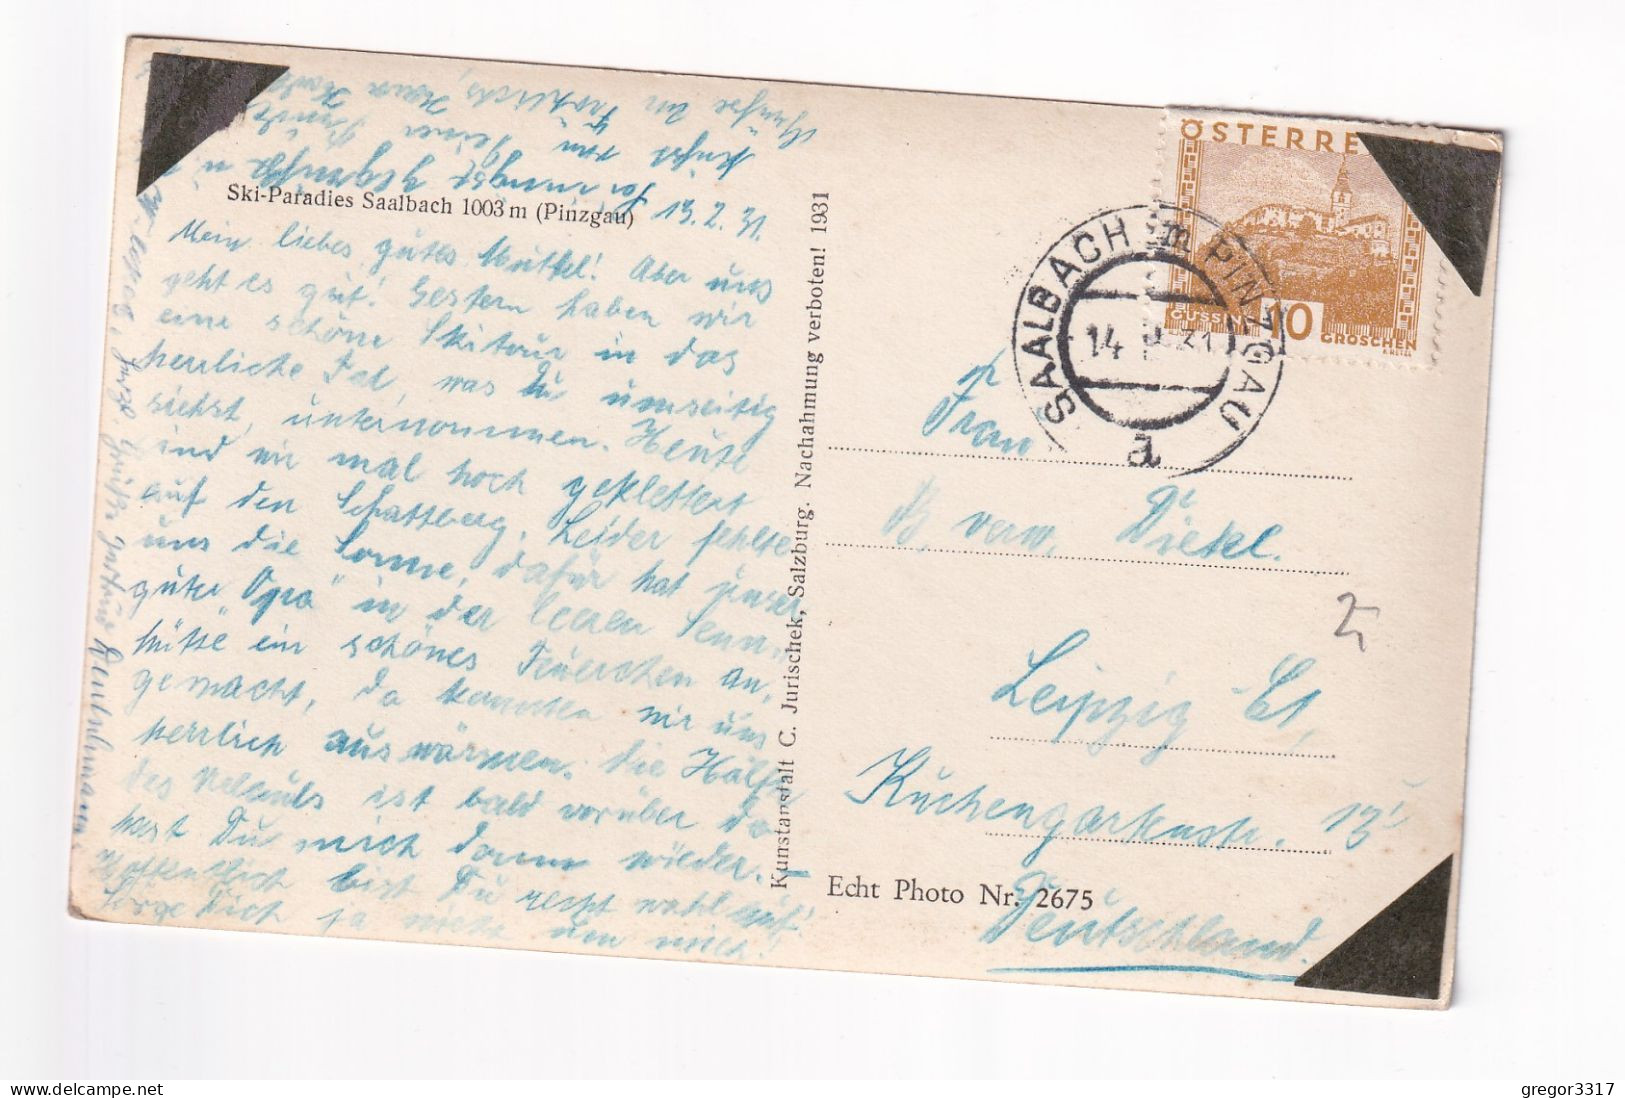 Ski-Paradies Saalbach 1003 m (Pinzgau)
13. 2. 31.
Mein liebes gutes Muttel! Aber uns
geht es gut! Gestern haben wir
eine schöne Skitour in das
herrliche Tal, was Du umseitig
siehst, unternommen. Heute
sind wir mal hoch geklettert
auf den Schattberg. Leider fehlte
uns die Sonne, dafür hat unser
guter "Opa" in der leeren Senn-
hütte ein schönes Feuerchen an-
gemacht, da konnten wir uns
herrlich auswärmen. Die Hälfte
des Urlaubs ist bald vorüber da
hast Du mich dann wieder. –
Hoffentlich bist Du recht wohlauf!
Sorge Dich ja nicht um mich!
Kunstanstalt C. Jurischek, Salzburg. Nachahmung verboten! 1931
ÖSTERRE
GÜSSING
10 GROSCHEN
SAALBACH im PINZGAU
14 31
a
Frau
verw. Dietel.
Leipzig
Küchengartenstr. 13
Deutschland.
Echt Photo Nr. 2675
gregor3317